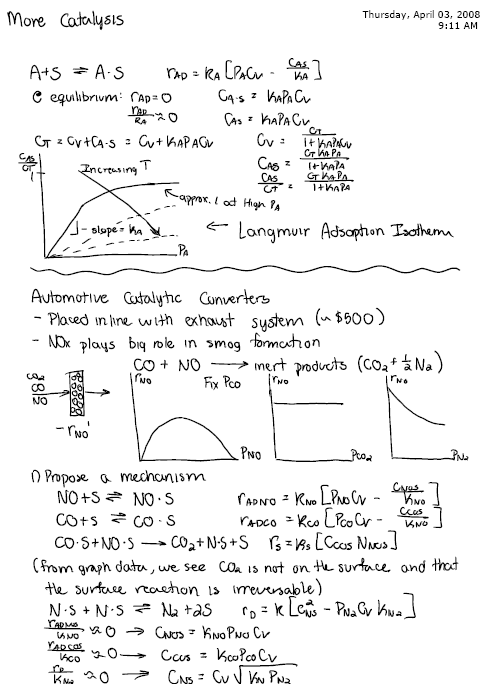 More Catalysis
Thursday, April 03, 2008
9:11 AM
A+S ⇌ A·S   r_AD = k_A [P_A C_V - C_AS/K_A]
@ equilibrium: r_AD = 0   C_A·S = K_A P_A C_V
r_AD/k_A ≈ 0   C_AS = K_A P_A C_V
C_T = C_V + C_A·S = C_V + K_A P_A C_V   C_V = C_T/(1+K_A P_A C_V)
C_AS = C_T K_A P_A/(1+K_A P_A)
C_AS/C_T = C_T K_A P_A/(1+K_A P_A)
C_AS/C_T
1
Increasing T
approx. 1 at High P_A
slope = K_A
P_A
← Langmuir Adsoption Isotherm
Automotive Catalytic Converters
- Placed in line with exhaust system (~$500)
- NOx plays big role in smog formation
CO + NO → inert products (CO₂ + ½ N₂)
CO₂
CO
NO
-r_NO'
r_NO
Fix P_CO
P_NO
r_NO
P_CO₂
r_NO
P_N₂
1) Propose a mechanism
NO+S ⇌ NO·S   r_ADNO = k_NO [P_NO C_V - C_NOS/K_NO]
CO+S ⇌ CO·S   r_ADCO = k_CO [P_CO C_V - C_COS/K_NO]
CO·S+NO·S → CO₂+N·S+S   r_S = k_S [C_COS N_NOS]
(from graph data, we see CO₂ is not on the surface and that
the surface reaction is irreversable)
N·S + N·S ⇌ N₂ + 2S   r_D = k [C²_NS - P_N₂ C_V K_N₂]
r_ADNO/k_NO ≈ 0 → C_NOS = K_NO P_NO C_V
r_ADCOS/k_CO ≈ 0 → C_COS = K_CO P_CO C_V
r_D/k_N₂ ≈ 0 → C_NS = C_V √(K_N P_N₂)